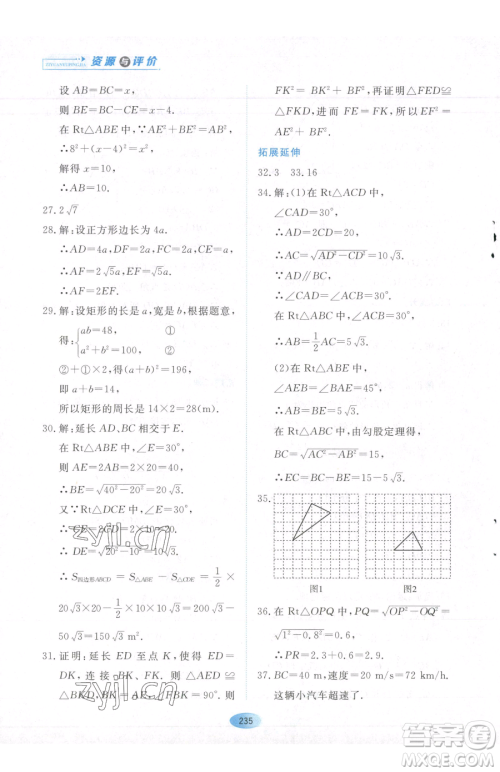 资源与评价
设 AB=BC=x，
则 BE=BC-CE=x-4.
在 Rt△ABE 中，∵AE²+BE²=AB²，
∴8²+(x-4)²=x²，
解得 x=10，
∴AB=10.
27. 2√7
28. 解：设正方形边长为 4a.
∴AD=4a，DF=2a，FC=2a，EC=a，
∴AF=2√5a，EF=√5a，
∴AF=2EF.
29. 解：设矩形的长是 a，宽是 b，根据题意，
得：{ab=48， ①
a²+b²=100， ②
②+①×2，得(a+b)²=196，
即 a+b=14，
所以矩形的周长是 14×2=28(m).
30. 解：延长 AD、BC 相交于 E.
在 Rt△ABE 中，∠E=30°，
则 AE=2AB=2×20=40，
∴BE=√(40²-20²)=20√3.
又∵Rt△CDE 中，∠E=30°，
∴CE=2CD=2×10=20，
∴DE=√(20²-10²)=10√3.
∴S四边形ABCD=S△ABE-S△CDE=1/2×
20√3×20-1/2×10×10√3=200√3-
50√3=150√3(m²).
31. 证明：延长 ED 至点 K，使得 ED=
DK，连接 BK、FK，进而证明△AED≌
△BKD，AE=BK，∠FBK=90°，则
FK²=BK²+BF²，再证明△FED≌
△FKD，进而 FE=FK，所以 EF²=
AE²+BF².
拓展延伸
32. 3 33. 16
34. 解：(1)在 Rt△ACD 中，
∠CAD=30°，
∴AD=2CD=20，
∴AC=√(AD²-CD²)=10√3.
∵AD∥BC，
∴∠ACB=∠CAD=30°，
在 Rt△ABC 中，∠ACB=30°，
∴AB=1/2AC=5√3.
(2)在 Rt△ABE 中，
∠AEB=∠BAE=45°，
∴BE=AB=5√3.
在 Rt△ABC 中，由勾股定理得：
BC=√(AC²-AB²)=15，
∴CE=BC-BE=15-5√3.
35.
图1 图2
36. 在 Rt△OPQ 中，PQ=√(OP²-OQ²)=
√(1²-0.8²)=0.6，
∴PR=2.3+0.6=2.9.
37. BC=40 m，速度=20 m/s=72 km/h，
这辆小汽车超速了.
235
zyjl.cn
zyjl.cn
答案圈
MXQE.COM